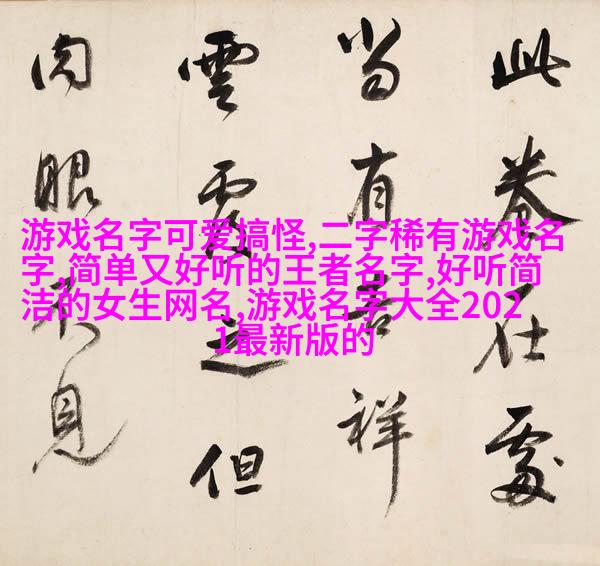 此卷在處
當有吉祥
雲覆之但
肉眼不見
游戏名字可爱搞怪,二字稀有游戏名
字,简单又好听的王者名字,好听简
洁的女生网名,游戏名字大全202
1最新版的